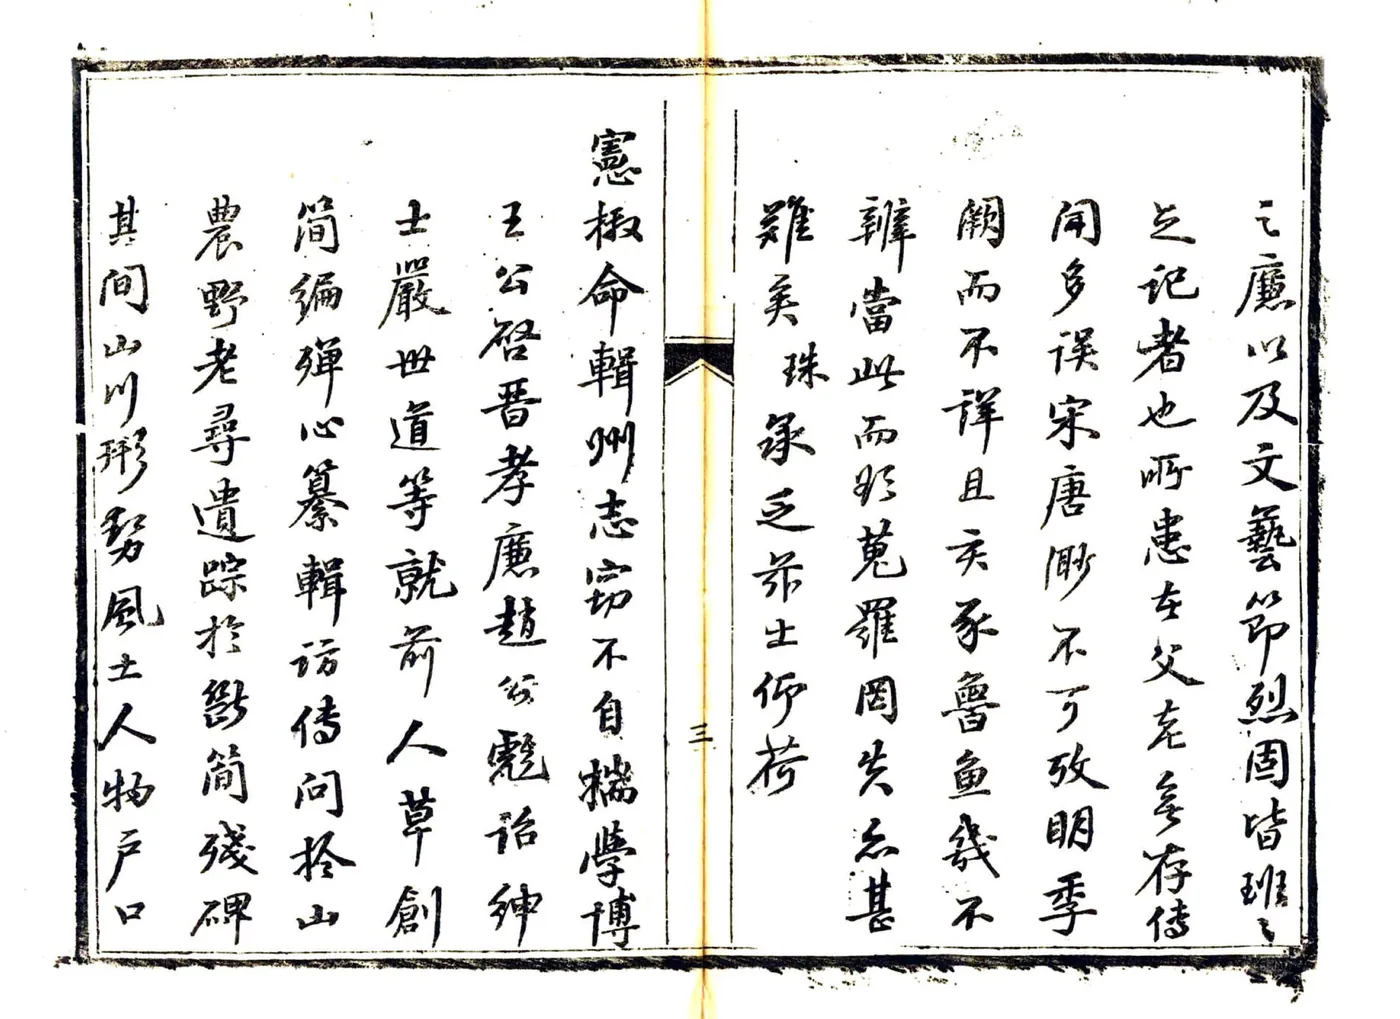 之廉以及文藝節烈固皆班之
足記者也所患在父老無存傳
聞多误宋唐渺不可攷明季
闕而不詳且亥豕魯魚幾不
辨當此而欲蒐羅罔失忘甚
難矣珠承乏茲土仰荷
三
憲檄命輯州志竊不自揣學博
王公啓晋孝廉趙公彪詔紳
士嚴世道等就前人草創
简編殫心纂輯訪傳问於山
農野老尋遺踪於斷简殘碑
其间山川形势風土人物户口